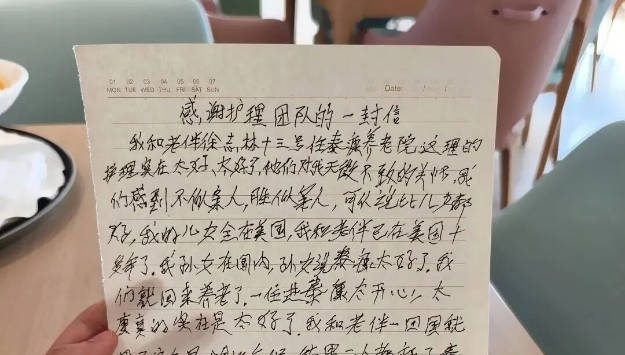 01 02 03 04 05 06 07
MON TUE WED THU FRI SAT SUN
Date:
感谢护理团队的一封信
我和老伴徐志林十三号住泰康养老院这理的
护理实在太好,太好了,他们对我无微不致的关怀,我
们感到不似亲人,胜似亲人,可以说比儿女都
好,我的儿女全在美国,我和老伴已在美国十
年了.我孙女在国内,孙女说泰康太好了.我
们就回来养老了.一位进泰康太开心!太
真的实在是太好了.我和老伴一回国就